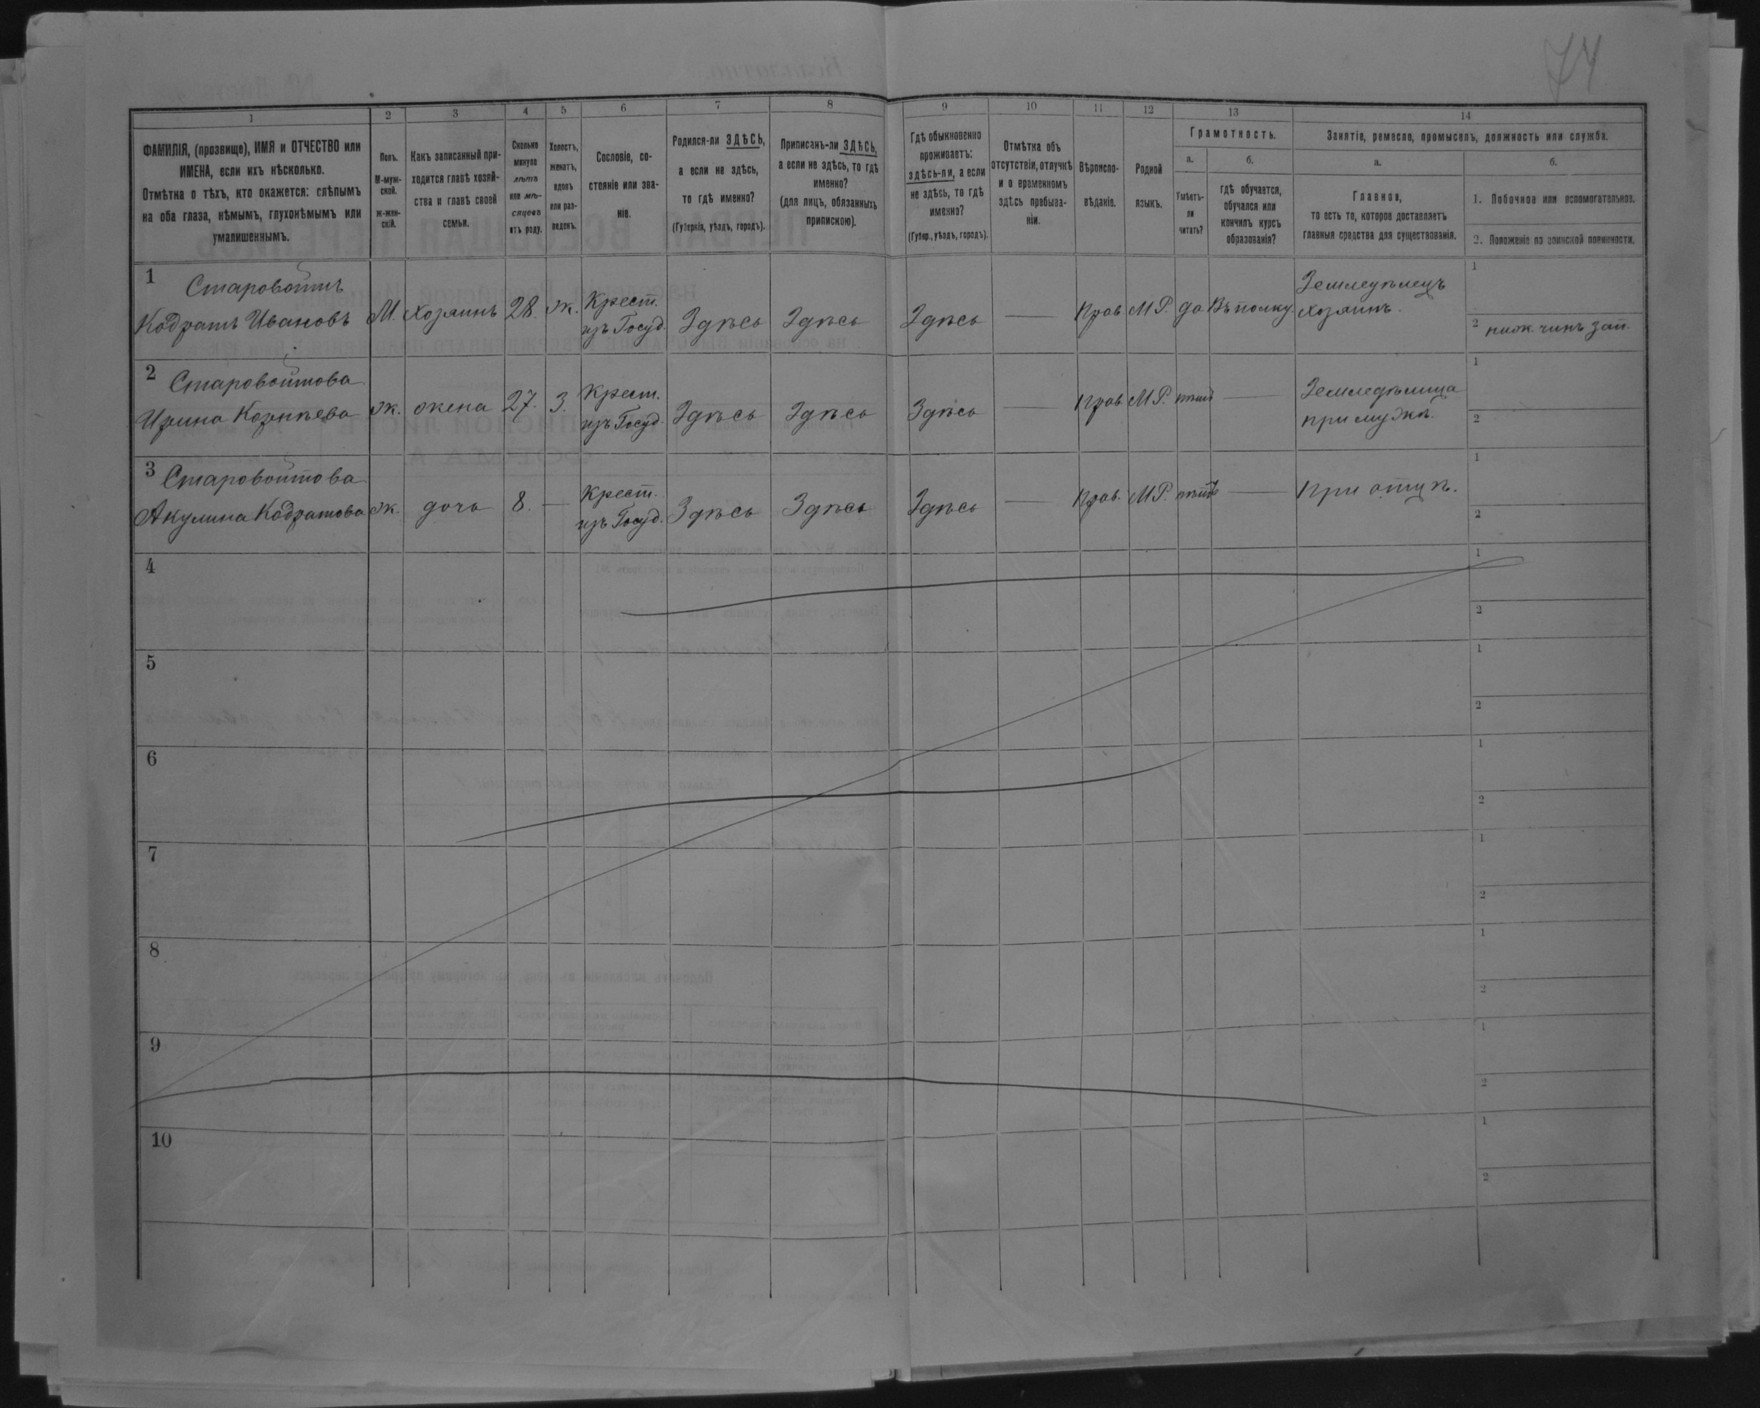 74
1
2
3
4
5
6
7
8
9
10
11
12
13
14
ФАМИЛІЯ, (прозвище), ИМЯ и ОТЧЕСТВО или
ИМЕНА, если ихъ нѣсколько.
Отмѣтка о тѣхъ, кто окажется: слѣпымъ
на оба глаза, нѣмымъ, глухонѣмымъ или
умалишеннымъ.
Полъ.
М-муж-
ской.
Ж-жен-
скій.
Какъ записанный при-
ходится главѣ хозяй-
ства и главѣ своей
семьи.
Сколько
минуло
лѣтъ
или мѣ-
сяцевъ
отъ роду.
Холостъ,
женатъ,
вдовъ
или раз-
веденъ.
Сословіе, со-
стояніе или зва-
ніе.
Родился-ли ЗДѢСЬ,
а если не здѣсь,
то гдѣ именно?
(Губернія, уѣздъ, городъ).
Приписанъ-ли ЗДѢСЬ,
а если не здѣсь, то гдѣ
именно?
(для лицъ, обязанныхъ
припискою).
Гдѣ обыкновенно
проживаетъ:
здѣсь-ли, а если
не здѣсь, то гдѣ
именно?
(Губер., уѣздъ, городъ).
Отмѣтка объ
отсутствіи, отлучкѣ
и о временномъ
здѣсь пребыва-
ніи.
Вѣроиспо-
вѣданіе.
Родной
языкъ.
Грамотность.
а.
б.
Умѣетъ-
ли
читать?
гдѣ обучается,
обучался или
кончилъ курсъ
образованія?
Занятіе, ремесло, промыселъ, должность или служба.
а.
б.
Главное,
то есть то, которое доставляетъ
главныя средства для существованія.
1. Побочное или вспомогательное.
2. Положеніе по воинской повинности.
1
Старовойтъ
Кодратъ Ивановъ
М.
хозяинъ
28.
Ж.
Крест.
изъ Госуд.
Здѣсь
Здѣсь
Здѣсь
Прав
М.Р.
да
Въ полку
Земледѣлецъ
хозяинъ.
1
2 ниж. чинъ зап.
2
Старовойтова
Ирина Корнѣева
Ж.
жена
27.
З.
Крест.
изъ Госуд.
Здѣсь
Здѣсь
Здѣсь
Прав
М.Р.
нѣтъ
при мужѣ.
1
2
3
Старовойтова
Акулина Кодратова
Ж.
дочь
8.
Крест.
изъ Госуд.
Здѣсь
Здѣсь
Здѣсь
Прав.
М.Р.
нѣтъ
При отцѣ.
1
2
4
1
2
5
1
2
6
1
2
7
1
2
8
1
2
9
1
2
10
1
2